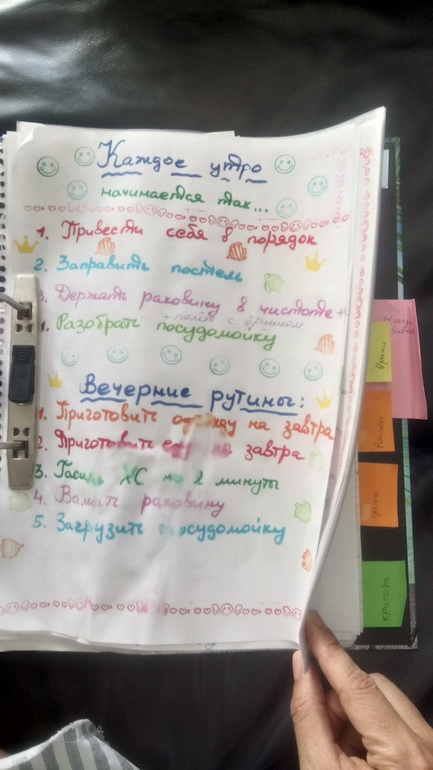 Каждое утро
начинается так...
1. Привести себя в порядок
2. Заправить постель
3. Держать раковину в чистоте
4. Разобрать посудомойку
Вечерние рутины:
1. Приготовить одежду на завтра
2. Приготовить еду на завтра
3. Гасить ХС на 2 минуты
4. Вымыть раковину
5. Загрузить посудомойку
дача
красота